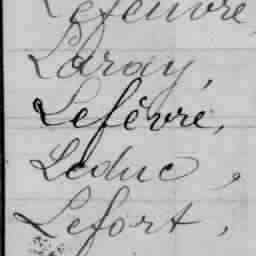 Lefeuvre
Laray,
Lefèvre,
Leduc,
Lefort,